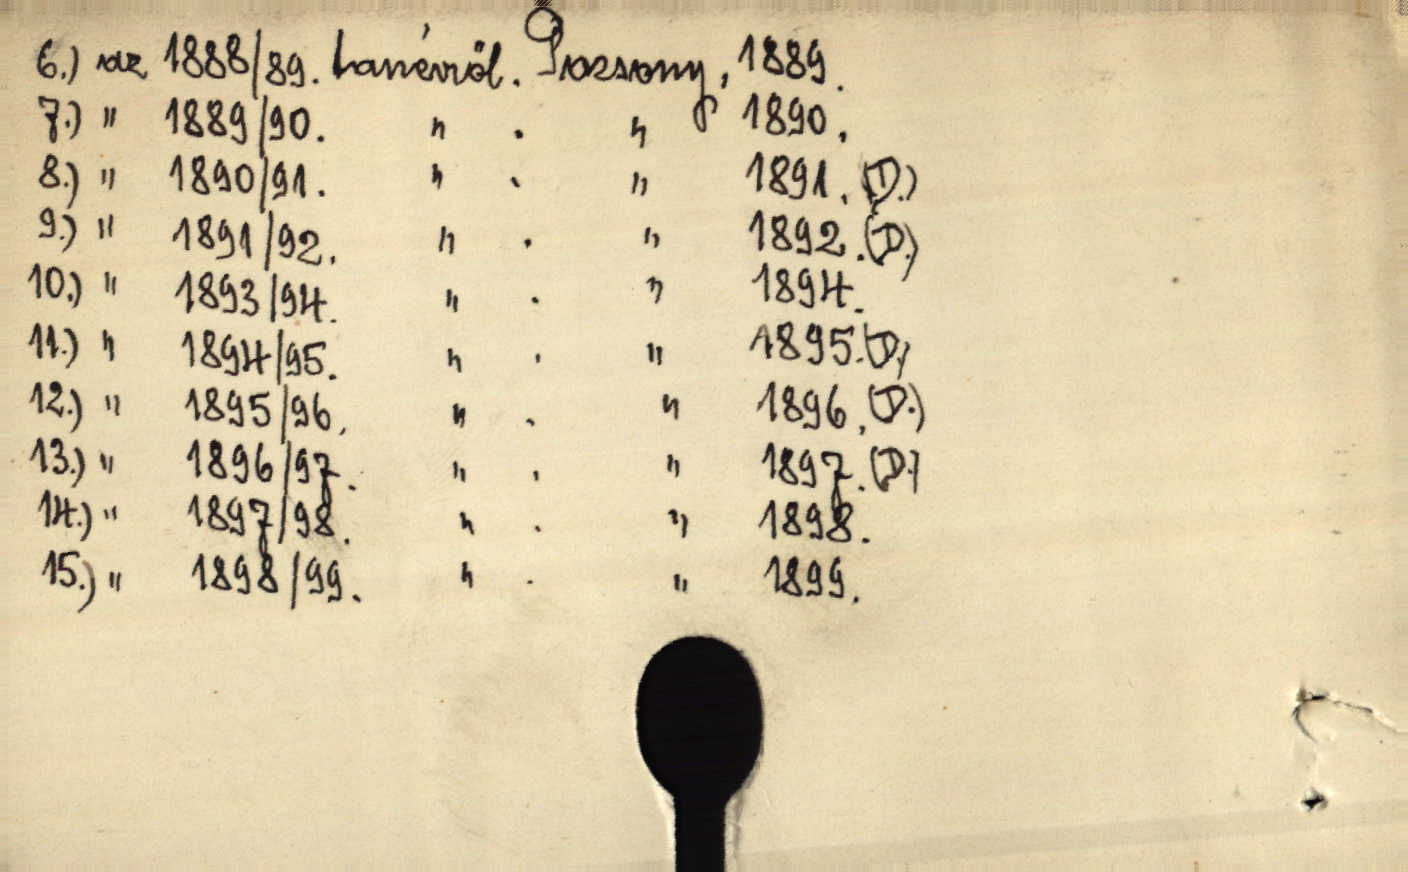 6.) az 1888/89. tanévről. Pozsony, 1889.
7.) " 1889/90. " . " 1890.
8.) " 1890/91. " . " 1891. (D.)
9.) " 1891/92. " . " 1892. (D.)
10.) " 1893/94. " . " 1894.
11.) " 1894/95. " . " 1895. (D.)
12.) " 1895/96. " . " 1896. (D.)
13.) " 1896/97. " . " 1897. (D.)
14.) " 1897/98. " . " 1898.
15.) " 1898/99. " . " 1899.